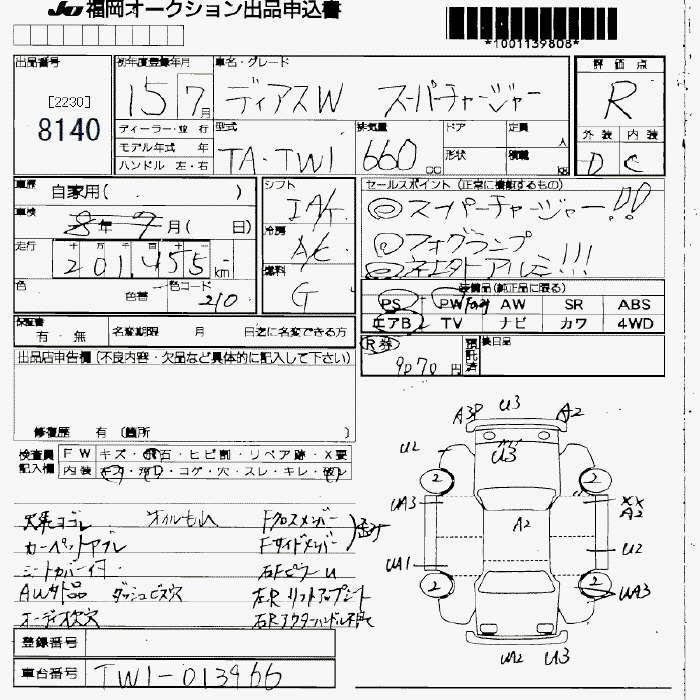 JU 福岡オークション出品申込書
*1001139808*
出品番号
[2230]
8140
初年度登録年月
15 7月
ディーラー・並行
モデル年式 年
ハンドル 左・右
車名・グレード
ディアスW スーパーチャージャー
型式
TA-TW1
排気量
660 cc
ドア
形状
定員 人
積載 kg
評価点
R
外装 内装
D C
車歴 自家用( )
車検 8年9月( 日)
走行 十万千百十一
201,455 km
色 色替 色コード 210
シフト
IA/T
冷房
A/C
燃料
G
セールスポイント (正常に機動するもの)
◎スーパーチャージャー!!
◎フォグランプ
◎社外アルミ!!!
装備品(純正品に限る)
PS PW AW SR ABS
エアB TV ナビ カワ 4WD
保証書 有・無
名変期限 月 日迄に名変できる方
R券 9070 円
預託済
後日品
出品店申告欄(不良内容・欠品など具体的に記入して下さい)
修復歴 有 〔箇所 〕
検査員記入欄
FW キズ・飛石・ヒビ割・リペア跡・X要
内装 キズ・汚れ・コゲ・穴・スレ・キレ・破れ
オイルもれ Fクロスメンバー
カーペットヤブレ Fサイドメンバー
シートカバー付 右FピラーU
AW外品 ダッシュビス穴 左R リフトアップシート
オーディオ欠穴 右Rアウターハンドル不良
A3P U3 A2
U2 U3
2 2
UA3 XX A2
A2
U2
UA1
2 2
UA3
UA2 U3
登録番号
車台番号 TW1-013966